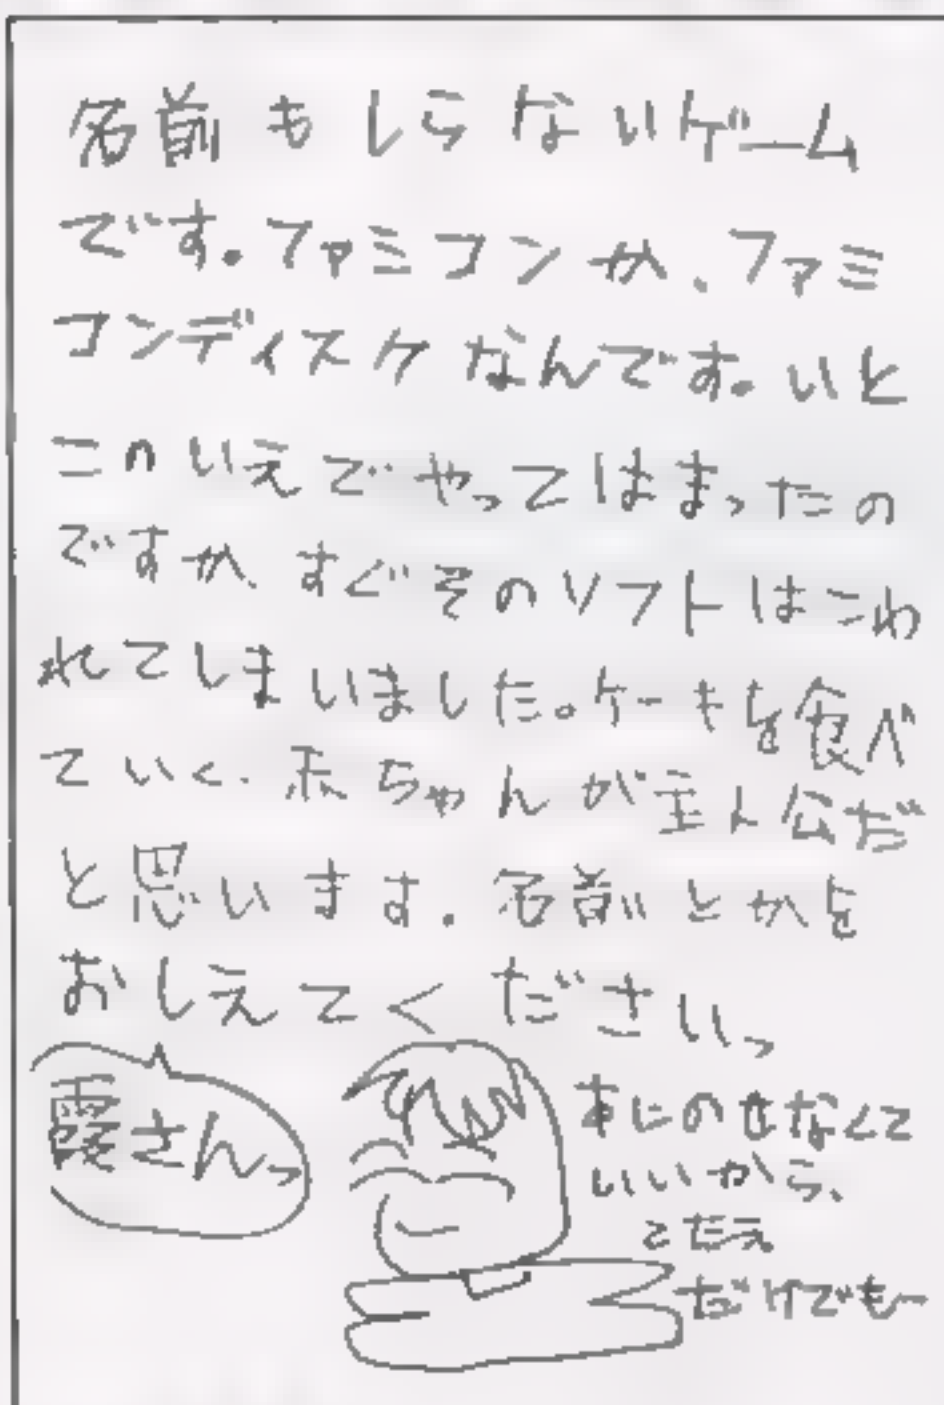 名前もしらないゲーム
です。ファミコンか、ファミ
コンディスクなんです。いと
このいえでやってはまったの
ですが、すぐそのソフトはこわ
れてしまいました。ケーキを食べ
ていく、赤ちゃんが主人公だ
と思います。名前とかを
おしえてくださいっ
霞さんっ
あじのせなくて
いいから、
こたえ
だけでも〜